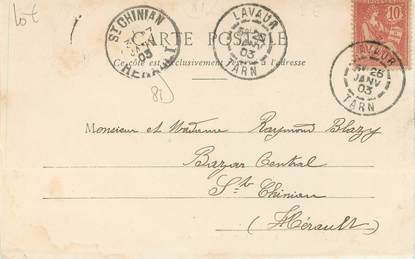 Lot
ST CHINIAN
JANV
03
HERAULT
LAVAUR
26
JANV
03
TARN
10
LAVAUR
26
JANV
03
TARN
CARTE POSTALE
Ce côté est exclusivement réservé à l'adresse
81
Monsieur et Madame Raymond Blazy
Bazar Central
St Chinian
(Hérault)